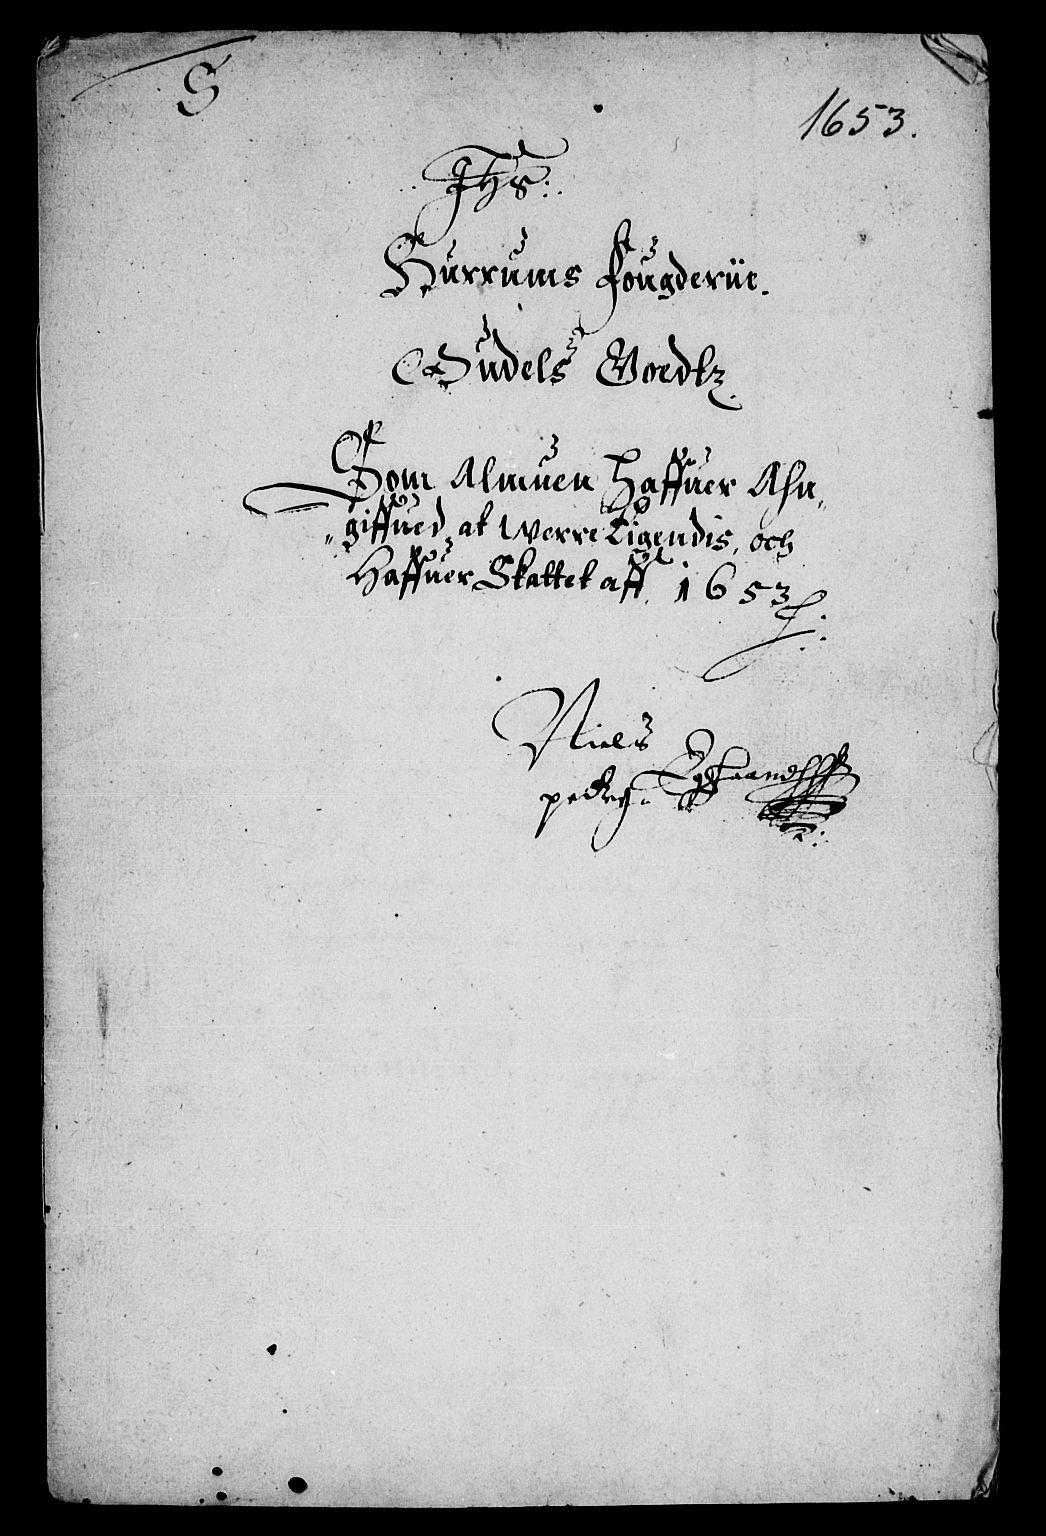 S
1653.
Jhs:
Hurrums Fougderiie.
Oudels Goedtz
Som Almuen Haffuer Ahn„
„giffued at werre Eigendis, och
Haffuer Skattet aff. 1653
Niels
peders: